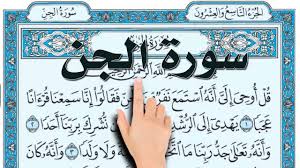 الجزء التاسع والعشرون
سورة الجن
سورة الجن
الله الرحمن الرحيم
قُلْ أُوحِيَ إِلَيَّ أَنَّهُ ٱسْتَمَعَ نَفَرٌ فَقَالُوٓا۟ إِنَّا سَمِعْنَا قُرْءَانًا
عَجَبًا ١ يَهْدِىٓ إِلَى نُّشْرِكَ بِرَبِّنَآ أَحَدًا ٢
وَأَنَّهُ تَعَـٰلَىٰ جَدُّ وَلَا وَلَدًا ٣